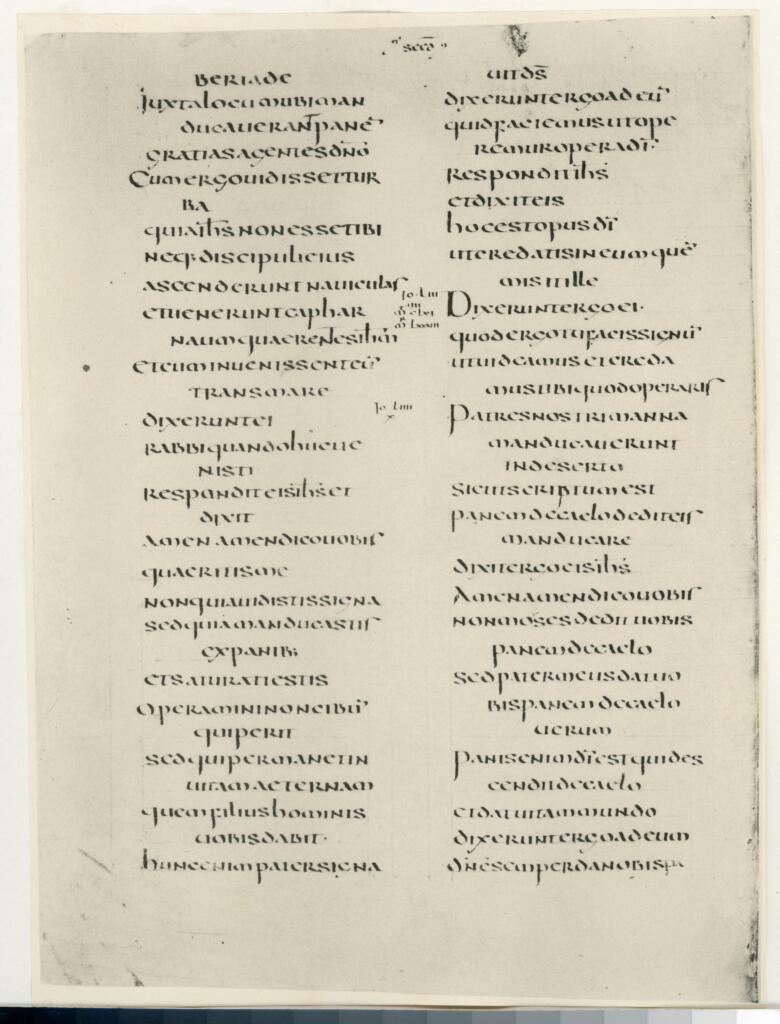 secd
beriade
iuxtalocūubiman
ducauerant̄panē
gratiasagentesdn̄o
Cumergouidissettur
ba
quiaih̄snonessetibi
neq·discipulieius
ascenderuntnauiculas
etueneruntcaphar
naumquaerentesih̄m
Etcuminuenissenteū
transmare
dixeruntei
rabbiquandohucue
nisti
Responditeisih̄set
dixit
Amenamendicouobis
quaeritisme
nonquiauidistissigna
sedquiamanducastis
expanib;
etsaturatiestis
Operamininoncibū
quiperit
sedquipermanetin
uitamaeternam
quemfiliushominis
uobisdabit·
huncenimpatersigna
uitds̄
dixeruntergoadeū
quidfaciemusutope
remuroperadī·
Responditih̄s
etdixiteis
hocestopusdī
utcredatisineumquē
misitille
Dixeruntergoei·
quodergotufacissignū
utuideamusetcreda
mustibiquodoperaris
Patresnostrimanna
manducauerunt
indeserto
sicutscriptumest
panemdecaelodediteis
manducare
dixitergoeisih̄s
Amenamendicouobis
nonmosesdedituobis
panemdecaelo
sedpatermeusdatuo
bispanemdecaelo
uerum
panisenimdīestquides
cenditdecaelo
etdatuitammundo
dixeruntergoadeum
dn̄esemperdanobispa